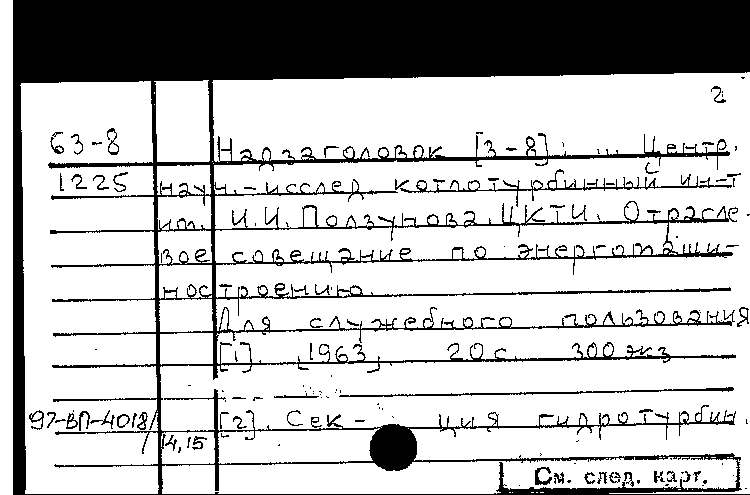 2
63-8 Надзаголовок [3-8]: ... Центр.
1225 науч.-исслед. котлотурбинный ин-т
им. И.И. Ползунова. ЦКТИ. Отрасле-
вое совещание по энергомаши-
ностроению.
Для служебного пользования
[1]. [1963]. 20 с. 300 экз
97-ВП-4018/ [2]. Сек- ция гидротурбин.
14,15
См. след. карт.